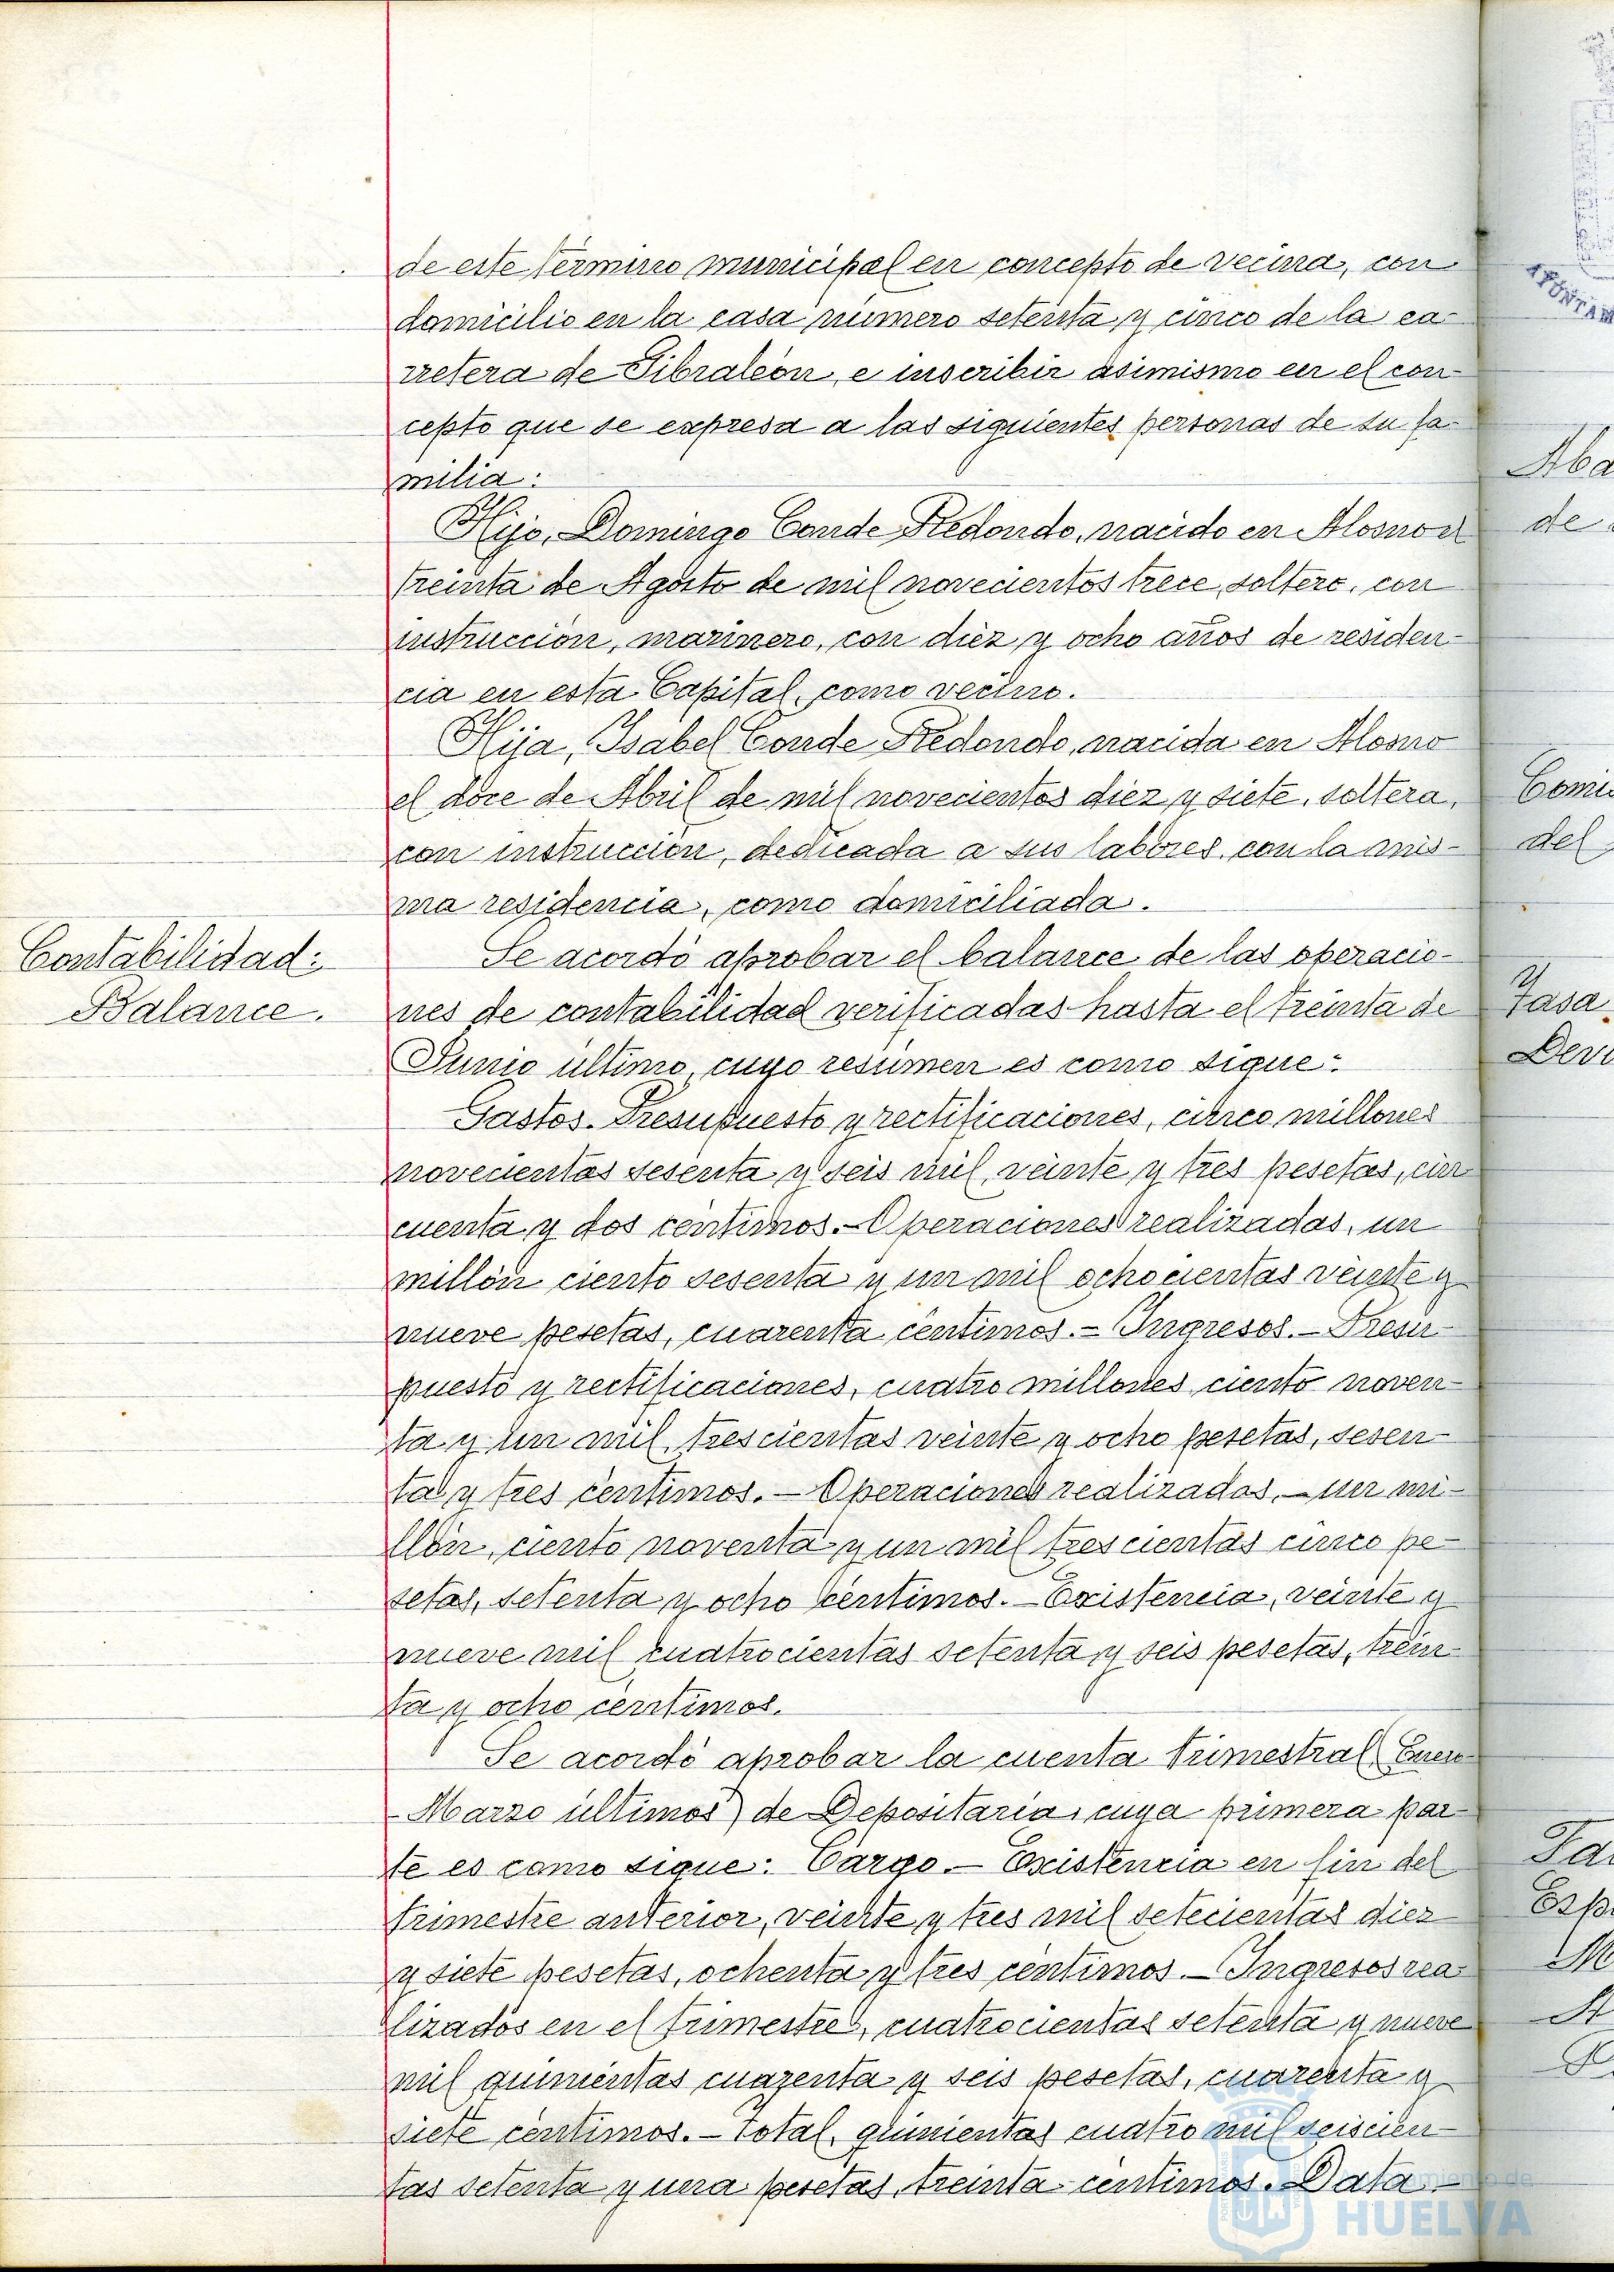 de este término municipal en concepto de vecina, con
domicilio en la casa número setenta y cinco de la ca-
rretera de Gibraleón, e inscribir asimismo en el con-
cepto que se expresa a las siguientes personas de su fa-
milia:
Hijo, Domingo Conde Redondo, nacido en Alosno el
treinta de Agosto de mil novecientos trece, soltero, con
instrucción, marinero, con diez y ocho años de residen-
cia en esta Capital, como vecino.
Hija, Isabel Conde Redondo, nacida en Alosno
el doce de Abril de mil novecientos diez y siete, soltera,
con instrucción, dedicada a sus labores, con la mis-
ma residencia, como domiciliada.
Contabilidad:
Balance.
Se acordó aprobar el balance de las operacio-
nes de contabilidad verificadas hasta el treinta de
Junio último, cuyo resúmen es como sigue:
Gastos.- Presupuesto y rectificaciones, cinco millones
novecientas sesenta y seis mil, veinte y tres pesetas, cin
cuenta y dos céntimos.- Operaciones realizadas, un
millón ciento sesenta y un mil ochocientas veinte y
nueve pesetas, cuarenta céntimos.- Ingresos.- Presu-
puesto y rectificaciones, cuatro millones ciento noven-
ta y un mil, trescientas veinte y ocho pesetas, sesen-
ta y tres céntimos.- Operaciones realizadas,- un mi-
llón, ciento noventa y un mil trescientas cinco pe-
setas, setenta y ocho céntimos.- Existencia, veinte y
nueve mil cuatrocientas setenta y seis pesetas, trein-
ta y ocho céntimos.
Se acordó aprobar la cuenta trimestral (Enero-
-Marzo últimos) de Depositaria, cuya primera par-
te es como sigue: Cargo.- Existencia en fin del
trimestre anterior, veinte y tres mil setecientas diez
y siete pesetas, ochenta y tres céntimos.- Ingresos rea-
lizados en el trimestre, cuatrocientas setenta y nueve
mil quinientas cuarenta y seis pesetas, cuarenta y
siete céntimos.- Total, quinientas cuatro mil seiscien-
tas setenta y una pesetas, treinta céntimos. Data.-
Aba
de
Comi
del
Tasa
Dev
Fa
Esp
M
A
HUELVA